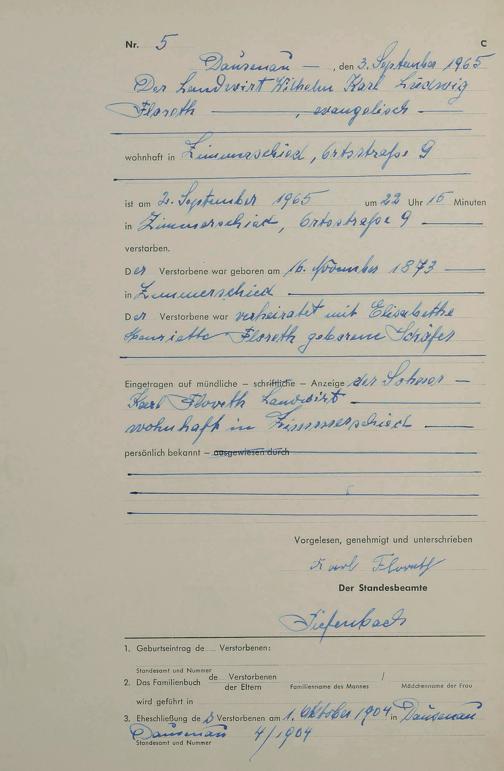 Nr. 5 C
Dausenau —, den 3. September 1965
Der Landwirt Wilhelm Karl Ludwig
Floreth —, evangelisch —
wohnhaft in Zimmerschied, Ortsstraße 9
ist am 2. September 1965 um 22 Uhr 15 Minuten
in Zimmerschied, Ortsstraße 9 —
verstorben.
Der Verstorbene war geboren am 16. November 1873 —
in Zimmerschied —
Der Verstorbene war verheiratet mit Elisabethe
Henriette Floreth geborene Schäfer
Eingetragen auf mündliche – schriftliche – Anzeige des —
Karl Floreth Landwirt —
wohnhaft in Zimmerschied —
persönlich bekannt – ausgewiesen durch
Vorgelesen, genehmigt und unterschrieben
Karl Floreth
Der Standesbeamte
Tiefenbach
1. Geburtseintrag de... Verstorbenen:
Standesamt und Nummer
2. Das Familienbuch de... Verstorbenen /
der Eltern Familienname des Mannes Mädchenname der Frau
wird geführt in
3. Eheschließung des Verstorbenen am 1. Oktober 1904 in Dausenau
Dausenau 4/1904
Standesamt und Nummer